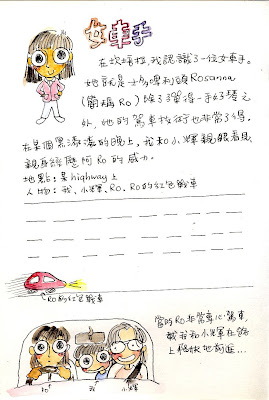 女車手
在坎培拉,我認識了一位女車手。
她就是士多啤利頭Rosanna
(簡稱Ro) 除了彈得一手好琴之
外,她的駕車技術也非常了得。
在某個黑漆漆的晚上,我和小輝親眼看見
親身經歷阿Ro的威力。
地點:某highway上
人物:我、小輝、Ro、Ro的紅色戰車
Ro的紅色戰車
當時Ro非常專心駕車,
載我和小輝在路
上輕快地前進...
Ro
我
小輝